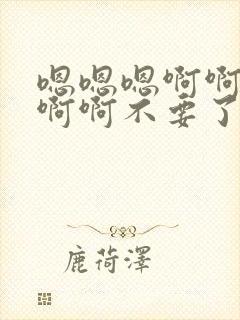 嗯嗯嗯啊啊
啊啊不要了
鹿荷泽